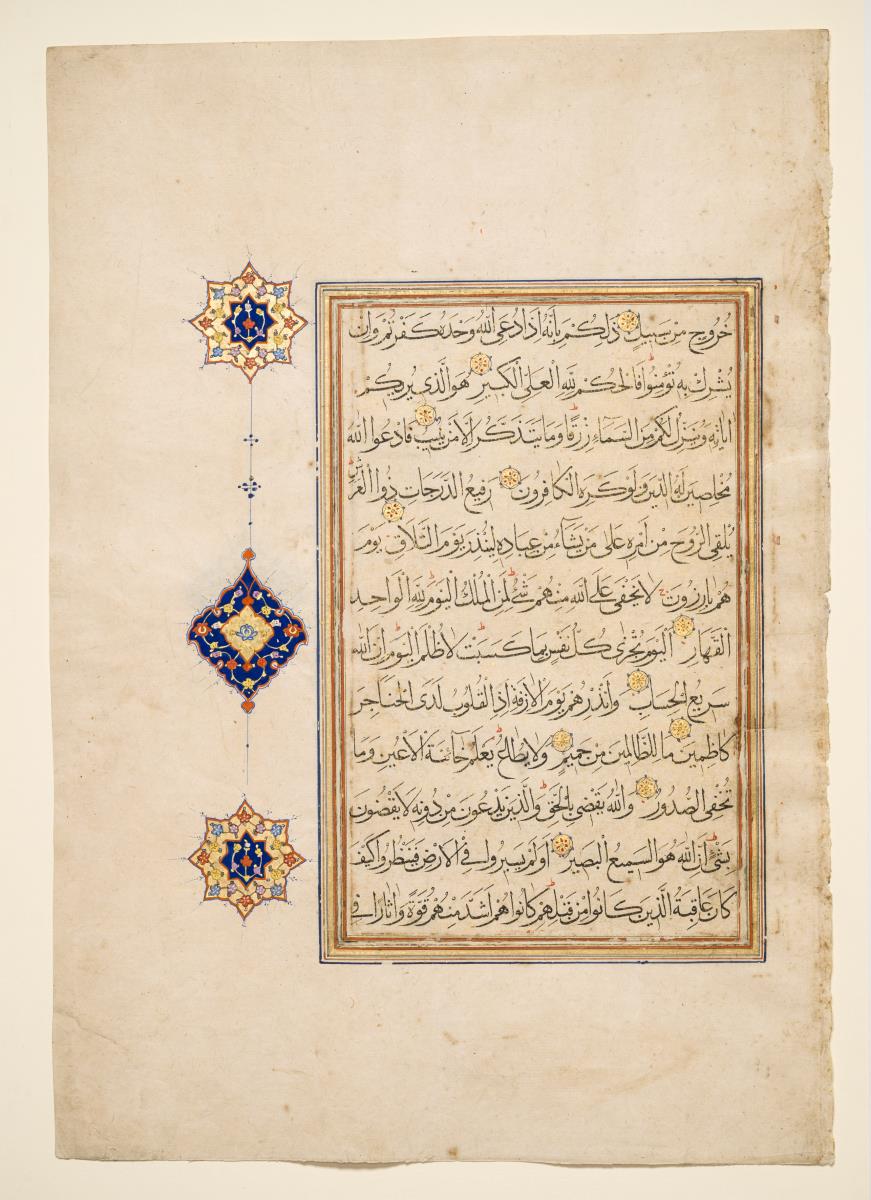 خُرُوجٍ مِنْ سَبِيلٍ ذٰلِكُمْ بِاَنَّهُ اِذَا دُعِيَ اللّٰهُ وَحْدَهُ كَفَرْتُمْ وَاِنْ
يُشْرَكْ بِهِ تُؤْمِنُوا فَالْحُكْمُ لِلّٰهِ الْعَلِيِّ الْكَبِيرِ هُوَ الَّذِي يُرِيكُمْ
اٰيَاتِهِ وَيُنَزِّلُ لَكُمْ مِنَ السَّمَآءِ رِزْقًا وَمَا يَتَذَكَّرُ اِلَّا مَنْ يُنِيبُ فَادْعُوا اللّٰهَ
مُخْلِصِينَ لَهُ الدِّينَ وَلَوْ كَرِهَ الْكَافِرُونَ رَفِيعُ الدَّرَجَاتِ ذُوا الْعَرْشِ
يُلْقِي الرُّوحَ مِنْ اَمْرِهِ عَلٰى مَنْ يَشَآءُ مِنْ عِبَادِهِ لِيُنْذِرَ يَوْمَ التَّلَاقِ يَوْمَ
هُمْ بَارِزُونَ لَا يَخْفٰى عَلَى اللّٰهِ مِنْهُمْ شَيْءٌ لِمَنِ الْمُلْكُ الْيَوْمَ لِلّٰهِ الْوَاحِدِ
الْقَهَّارِ اَلْيَوْمَ تُجْزٰى كُلُّ نَفْسٍ بِمَا كَسَبَتْ لَا ظُلْمَ الْيَوْمَ اِنَّ اللّٰهَ
سَرِيعُ الْحِسَابِ وَاَنْذِرْهُمْ يَوْمَ الْاٰزِفَةِ اِذِ الْقُلُوبُ لَدَى الْحَنَاجِرِ
كَاظِمِينَ مَا لِلظَّالِمِينَ مِنْ حَمِيمٍ وَلَا يُطَاعُ يَعْلَمُ خَآئِنَةَ الْاَعْيُنِ وَمَا
تُخْفِي الصُّدُورُ وَاللّٰهُ يَقْضِي بِالْحَقِّ وَالَّذِينَ يَدْعُونَ مِنْ دُونِهِ لَا يَقْضُونَ
بِشَيْءٍ اِنَّ اللّٰهَ هُوَ السَّمِيعُ الْبَصِيرُ اَوَلَمْ يَسِيرُوا فِي الْاَرْضِ فَيَنْظُرُوا كَيْفَ
كَانَ عَاقِبَةُ الَّذِينَ كَانُوا مِنْ قَبْلِهِمْ كَانُوا هُمْ اَشَدَّ مِنْهُمْ قُوَّةً وَاٰثَارًا فِي